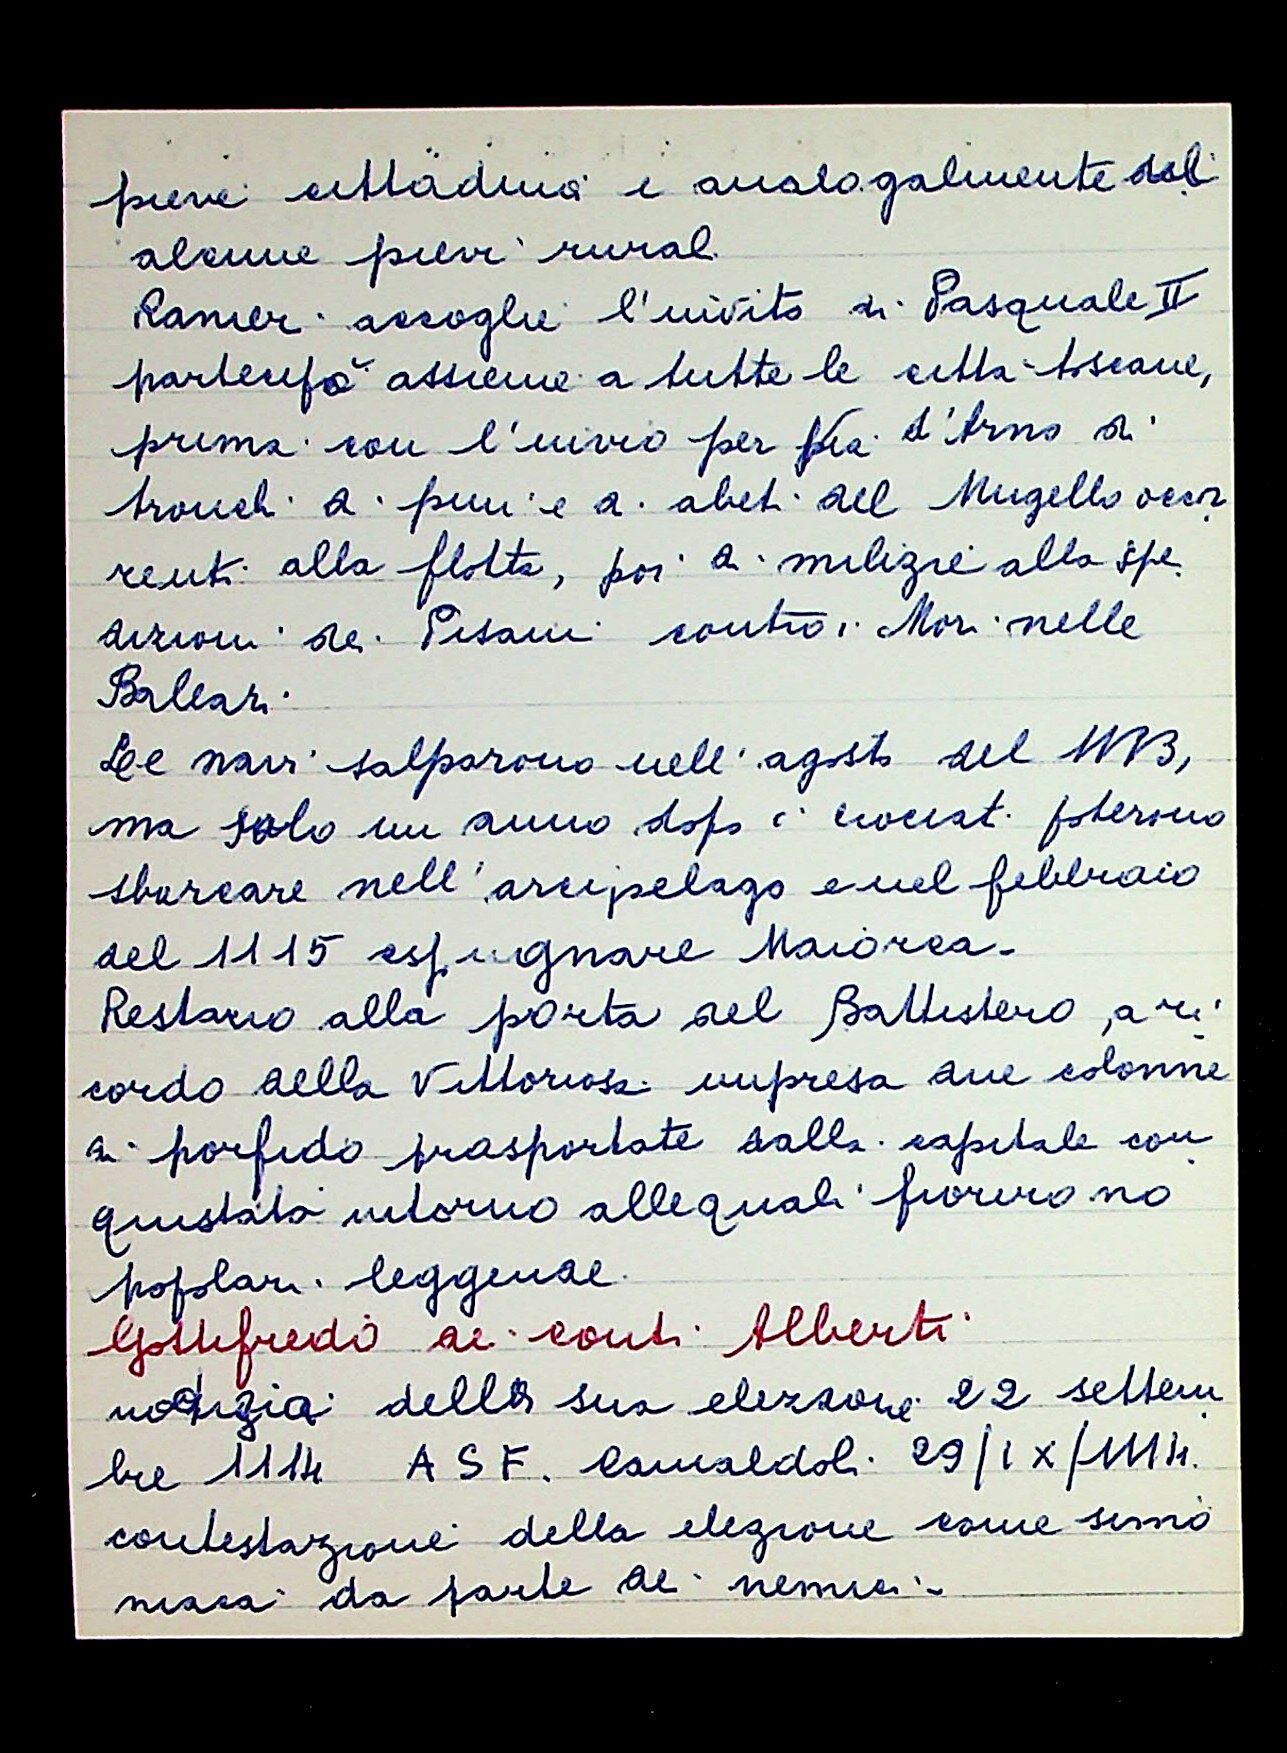 pieve cittadina e analogalmente dal
alcune pievi rural
Ranier accoglie l'invito di Pasquale II
partecipò assieme a tutte le città toscane,
prima con l'invio per via d'Arno di
tronchi di pini e di abeti del Mugello occor
renti alla flotta, poi di milizie alla spe
dizioni dei Pisani contro i Mori nelle
Baleari.
Le navi salparono nell'agosto del 1113,
ma solo un anno dopo i crociati poterono
sbarcare nell'arcipelago e nel febbraio
del 1115 espugnare Maiorca.
Restano alla porta del Battistero, a ri
cordo della Vittoriosa impresa due colonne
di porfido trasportate dalla capitale con
quistata intorno alle quali fiorirono
popolari leggende.
Gottifredo dei conti Alberti
notizia della sua elezione 22 settem
bre 1114 A S F. Camaldoli 29/IX/1114.
contestazione della elezione come simo
niaca da parte dei nemici.